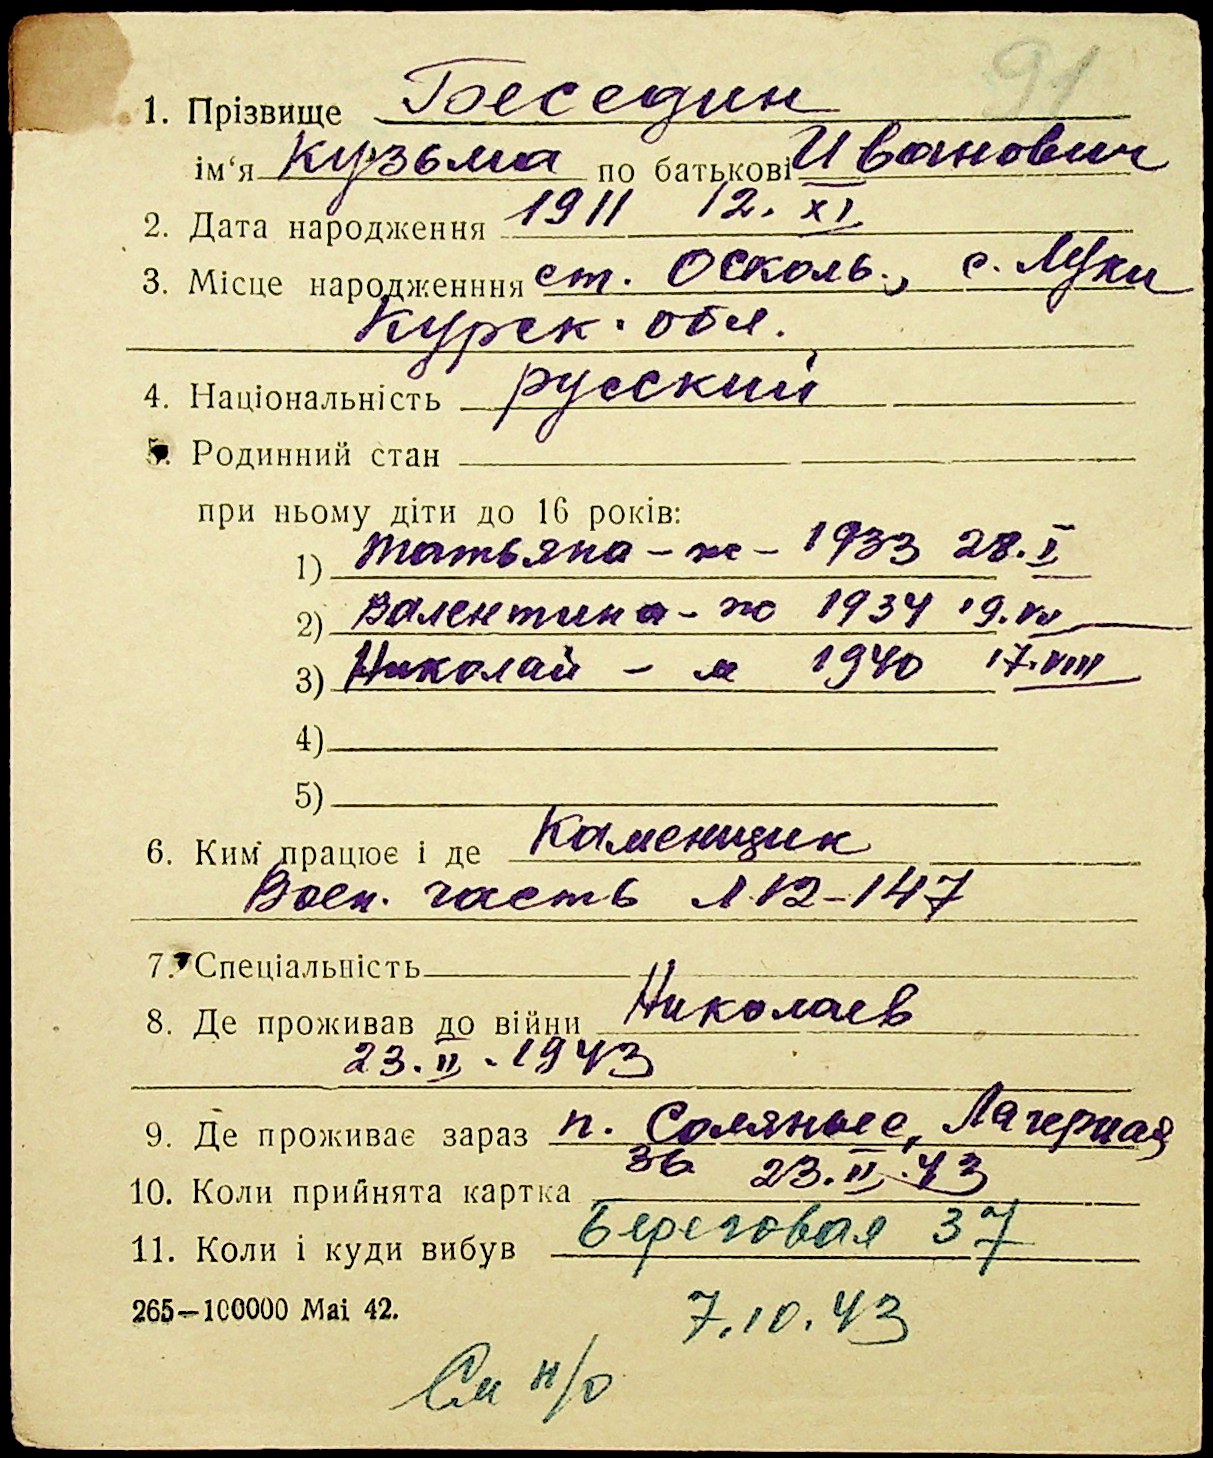 91
1. Прізвище Беседин
ім‘я Кузьма по батькові Иванович
2. Дата народження 1911 12. XI
3. Місце народженння ст. Осколь., с. Луки
Курск. обл.
4. Національність русский
5. Родинний стан
при ньому діти до 16 років:
1) Татьяна – ж – 1933 28. I
2) Валентина – ж 1934 19.
3) Николай – м 1940 17. VIII
4)
5)
6. Ким працює і де Каменщик
Воен. часть Л 12–147
7. Спеціальність
8. Де проживав до війни Николаев
23. II. 1943
9. Де проживає зараз п. Соляные, Лагерная
36 23. II. 43
10. Коли прийнята картка
11. Коли і куди вибув Береговая 37
265—100000 Mai 42. 7.10.43
См н/о